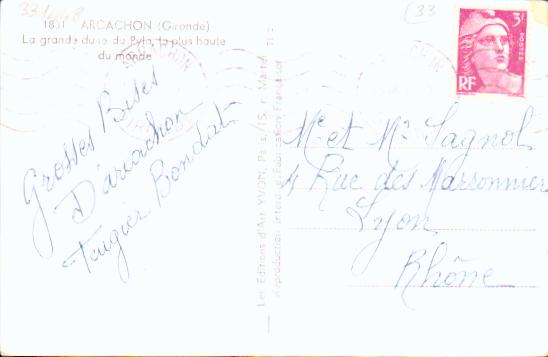 (33
1831 ARCACHON (Gironde)
La grande dune du Pyla, la plus haute
du monde
3F
POSTES
RF
Grosses Bises
D'arcachon
Tengier Bondat
Les Editions d'Art YVON, Paris, 15, r. Martel
Reproduction interdite. Fabrication Française
Me et Mr Sagnol
4 Rue des Marronnier
Lyon
Rhône